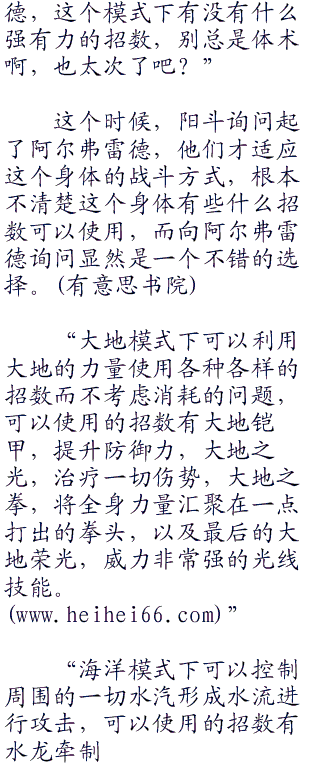 德，这个模式下有没有什么
强有力的招数，别总是体术
啊，也太次了吧？”
这个时候，阳斗询问起
了阿尔弗雷德，他们才适应
这个身体的战斗方式，根本
不清楚这个身体有些什么招
数可以使用，而向阿尔弗雷
德询问显然是一个不错的选
择。(有意思书院)
“大地模式下可以利用
大地的力量使用各种各样的
招数而不考虑消耗的问题，
可以使用的招数有大地铠
甲，提升防御力，大地之
光，治疗一切伤势，大地之
拳，将全身力量汇聚在一点
打出的拳头，以及最后的大
地荣光，威力非常强的光线
技能。
(www.heihei66.com)”
“海洋模式下可以控制
周围的一切水汽形成水流进
行攻击，可以使用的招数有
水龙牵制